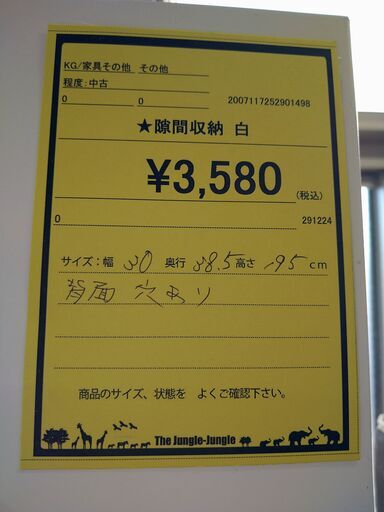 KG/家具その他 その他
程度:中古
0 0 2007117252901498
★隙間収納 白
¥3,580
(税込)
0 291224
サイズ:幅 30 奥行 38.5 高さ 195 cm
背面 穴あり
商品のサイズ、状態を よくご確認下さい。
The Jungle-Jungle